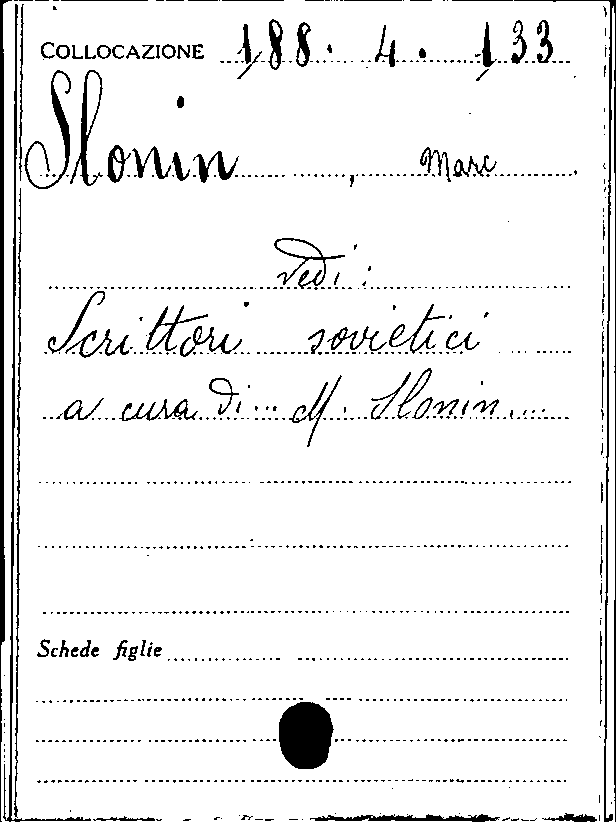 COLLOCAZIONE 188. 4. 133
Slonin, Marc
Vedi:
Scrittori sovietici
a cura di... M. Slonin....
Schede figlie